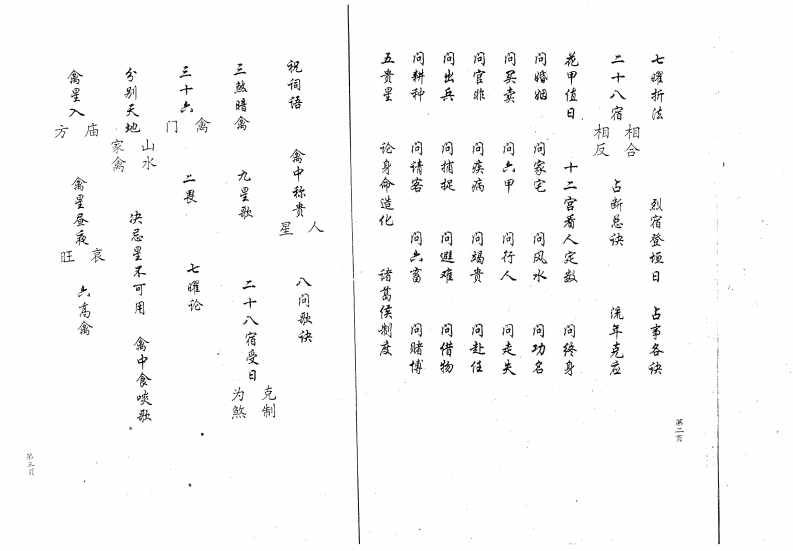 七曜折法 烈宿登垣日 占事各诀
二十八宿相合相反 占断总诀 流年克应
花甲值日 十二宫看人定数 问终身
问婚姻 问家宅 问风水 问功名
问买卖 问六甲 问行人 问走失
问官非 问疾病 问谒贵 问赴任
问出兵 问捕捉 问避难 问借物
问耕种 问请客 问六畜 问赌博
五贵星 论身命造化 诸葛侯制度
第二页
祝词语 禽中称贵人星 八问歌诀
三煞暗禽 九星歌 二十八宿受日克制为煞
三十六禽门 二畏 七曜论
分别天地山水家禽 决忌星不可用 禽中食啖歌
禽星入庙方 禽星昼夜衰旺 六高禽
第三页